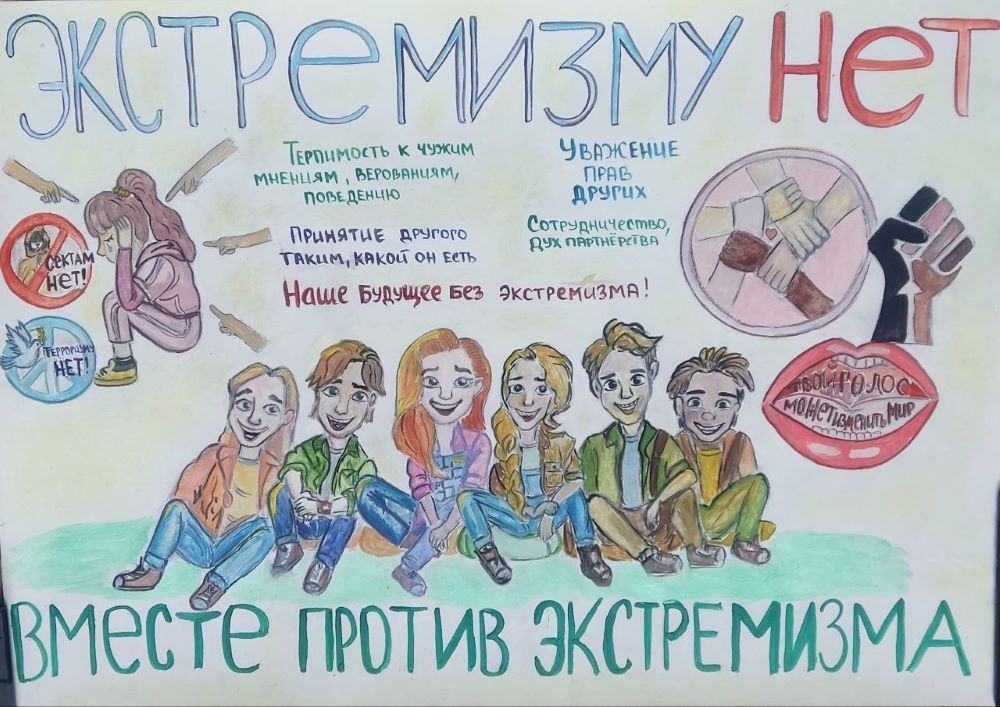 ЭКСТРЕМИЗМУ НЕТ
Терпимость к чужим
мнениям, верованиям,
поведению
Уважение
прав
других
Принятие другого
таким, какой он есть
Сотрудничество,
дух партнёрства
Наше будущее без экстремизма!
СЕКТАМ
НЕТ!
ТЕРРОРИЗМУ
НЕТ!
ТВОЙ ГОЛОС
МОЖЕТ ИЗМЕНИТЬ МИР
ВМЕСТЕ ПРОТИВ ЭКСТРЕМИЗМА